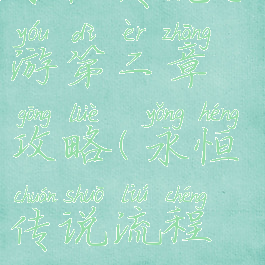 yóu dì èr zhāng
游第二章
gōng lüè yǒng héng
攻略(永恒
chuán shuō liú chéng
传说流程